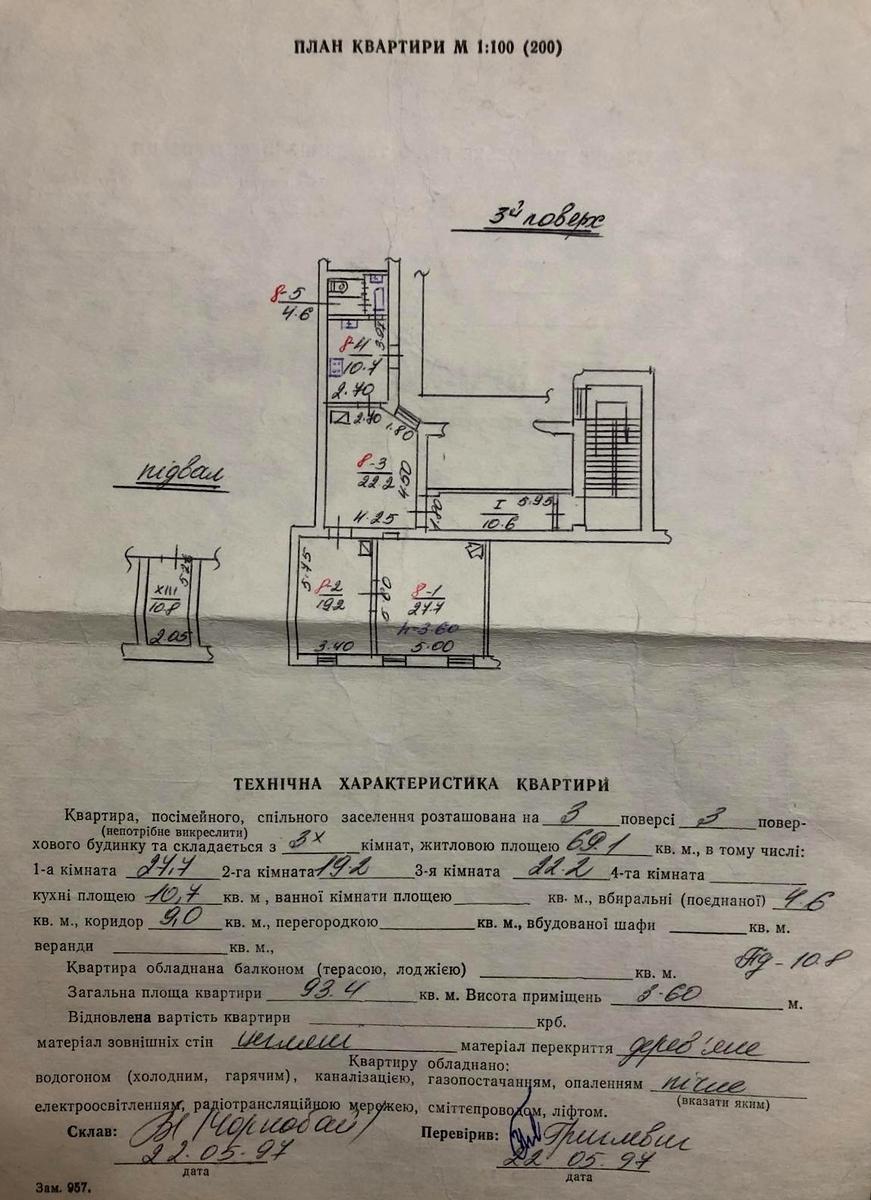 ПЛАН КВАРТИРИ М 1:100 (200)
3й поверх
8-5
4.6
8-4
10.7
2.70
2.70
1.80
8-3
22.2
4.50
4.25
підвал
I
10.6
5.95
1.80
XIII
10.8
2.05
5.75
8-2
19.2
3.40
8-1
27.7
h-3.60
5.00
ТЕХНІЧНА ХАРАКТЕРИСТИКА КВАРТИРИ
Квартира, посімейного, спільного заселення розташована на 3 поверсі 3 повер-
(непотрібне викреслити)
хового будинку та складається з 3х кімнат, житловою площею 69.1 кв. м., в тому числі:
1-а кімната 27,7 2-га кімната 19.2 3-я кімната 22.2 4-та кімната
кухні площею 10,7 кв. м , ванної кімнати площею кв. м., вбиральні (поєднаної) 4.6
кв. м., коридор 9,0 кв. м., перегородкою кв. м., вбудованої шафи кв. м.
веранди кв. м.,
Пд - 10.8
Квартира обладнана балконом (терасою, лоджією) кв. м.
Загальна площа квартири 93.4 кв. м. Висота приміщень 3.60 м.
Відновлена вартість квартири крб.
матеріал зовнішніх стін матеріал перекриття дерев'яне
Квартиру обладнано:
водогоном (холодним, гарячим), каналізацією, газопостачанням, опаленням пічне
(вказати яким)
електроосвітленням, радіотрансляційною мережею, сміттєпроводом, ліфтом.
Склав: Перевірив:
22.05.97 22 05.97
дата дата
Зам. 957.